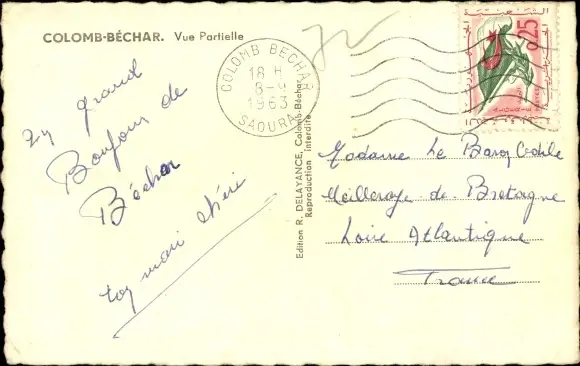 COLOMB-BÉCHAR. Vue Partielle
grand
Bonjour de
Béchar
ton mari chéri
Edition R. DELAYANCE, Colomb-Béchar
Reproduction interdite
COLOMB BECHAR
18 H
8-V
1963
SAOURA
25
Madame Le Baron Odile
Meilleraye de Bretagne
Loire Atlantique
France